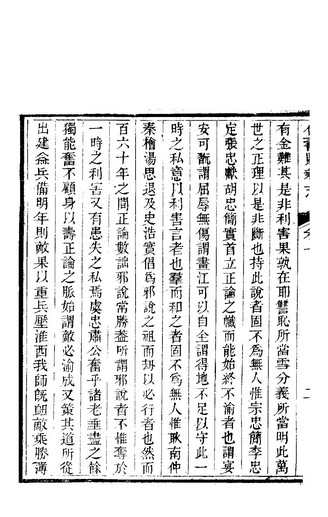 有金難其是非利害果孰在耶讐恥所當雪分義所當明此萬
世之正理以是非斷也持此說者固不為無人惟宗忠簡李忠
定張忠獻胡忠簡實首立正論之幟而能始終不渝者也謂宴
安可翫謂屈辱無傷謂畫江可以自全謂得地不足以守此一
時之私意以利害言者也羣而和之者固不為無人惟耿南仲
秦檜湯思退及史浩實倡為邪說之祖而胡以必行者也然而
百六十年之間正論數詘邪說常勝蓋所謂邪說者不惟奪於
一時之利害又有患失之私焉虞忠肅公奮乎諸老垂盡之餘
獨能奮不顧身以壽正論之脈始謂敵必渝成又策其道所從
出建益兵備明年則敵果以重兵壓淮西我師旣衂敵乘勝薄